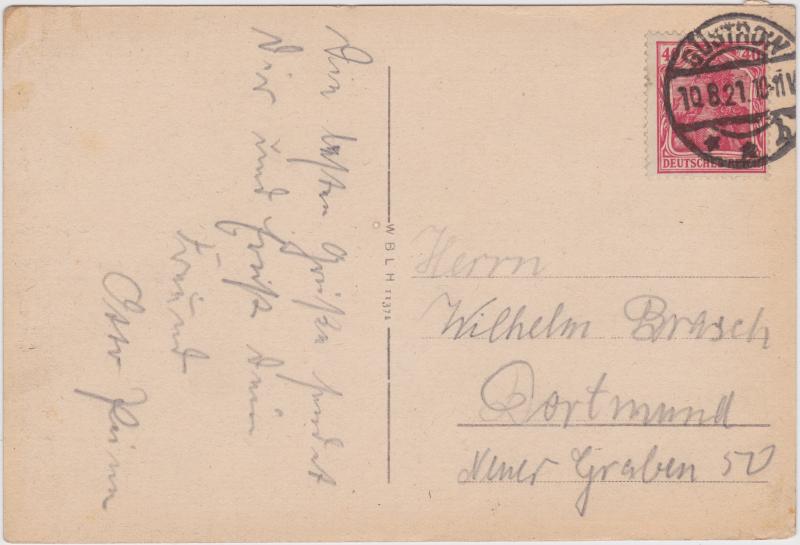 Die besten Grüße sendet
Dir und Grüßt Dein
Freund
Otto
W B L H 11374
40 40
DEUTSCHES REICH
GÜSTROW
10.8.21. 10-11 V
Herrn
Wilhelm Brasch
Dortmund
Neuer Graben 50